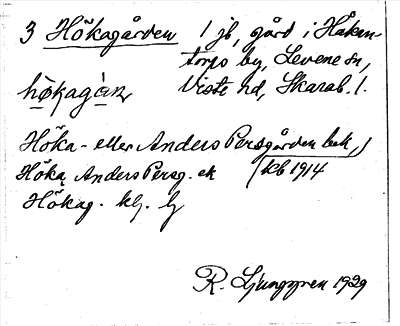 3 Hökagården 1 jb, gård i Håken-
torps by, Levene sn,
hökagàṇ Viste hd, Skarab. l.
Höka- eller Anders Persgården bek,
Höka, Anders Persg. ek (kb 1914
Hökag. klj. lj
R. Ljunggren 1929